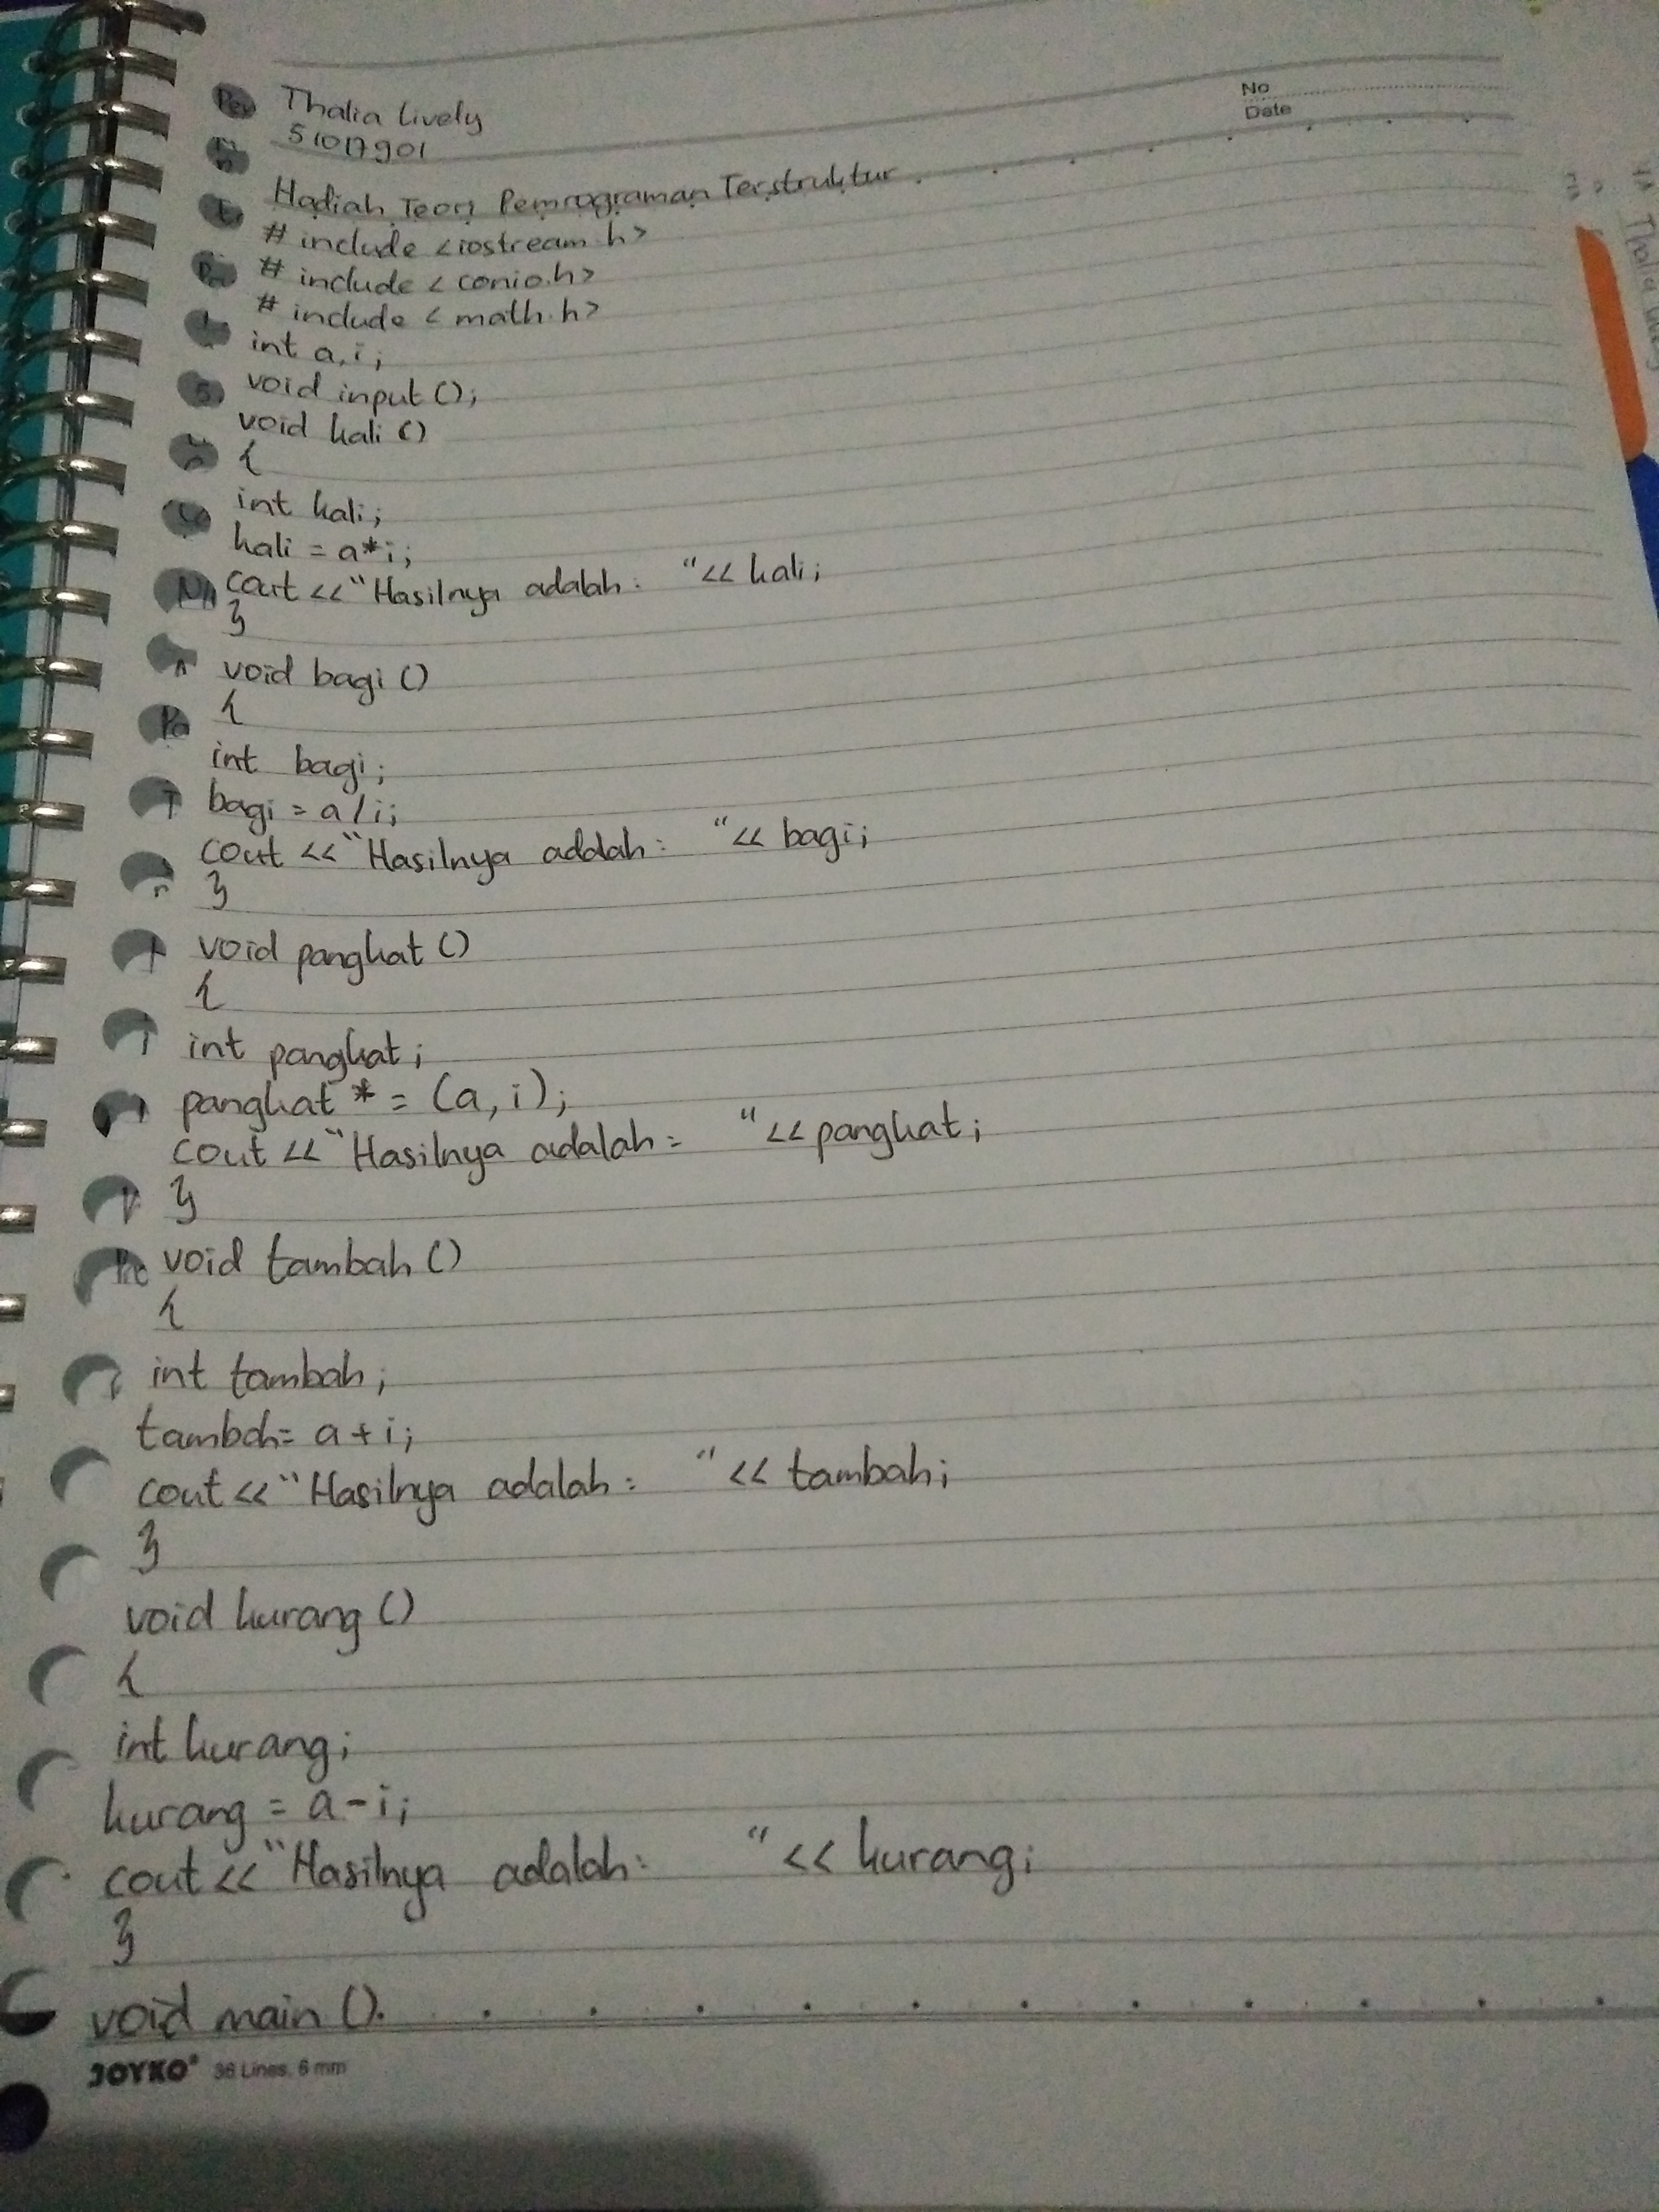 Thalia Lively
51017901
No
Date
Hadiah Teori Pemrograman Terstruktur
# include <iostream.h>
# include < conio.h>
# include < math.h>
int a,i;
void input ();
void kali ()
{
int kali;
kali = a*i;
cout <<"Hasilnya adalah: "<< kali;
}
void bagi ()
{
int bagi;
bagi = a/i;
cout <<"Hasilnya adalah: "<< bagi;
}
void pangkat ()
{
int pangkat;
pangkat * = (a, i);
cout <<"Hasilnya adalah: "<< pangkat;
}
void tambah ()
{
int tambah;
tambah= a+i;
cout <<"Hasilnya adalah: "<< tambah;
}
void kurang ()
{
int kurang;
kurang = a-i;
cout <<"Hasilnya adalah: "<< kurang;
}
void main ()
JOYKO 36 Lines, 6 mm
Thalia